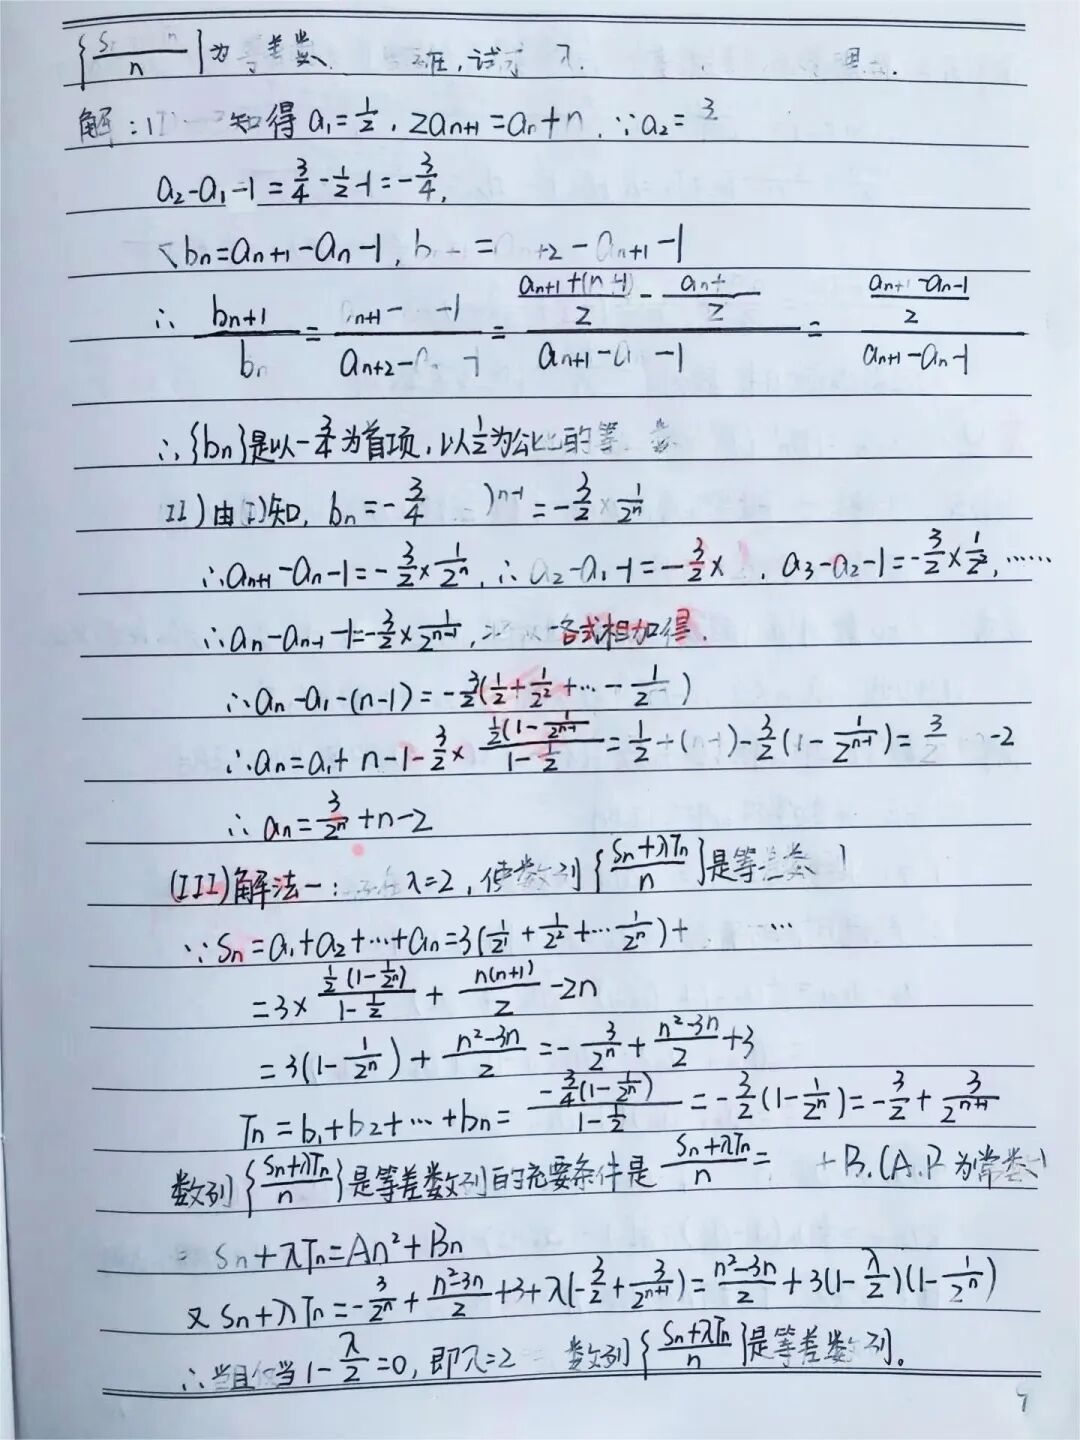 {S   n/n}为等差数   在,试求 λ.
解:(I) 知得 a₁=1/2, 2aₙ₊₁=aₙ+n, ∵a₂=3
a₂-a₁-1=3/4-1/2-1=-3/4,
bₙ=aₙ₊₁-aₙ-1, bₙ₊₁=aₙ₊₂-aₙ₊₁-1
∴ bₙ₊₁/bₙ = (aₙ₊₁- -1)/(aₙ₊₂- -1) = ((aₙ₊₁+(n+1))/2-(aₙ+ )/2 )/(aₙ₊₁-a -1) = ((aₙ₊₁-aₙ-1)/2)/(aₙ₊₁-aₙ-1)
∴{bₙ}是以-3/4为首项,以1/2为公比的等 数
II)由(I)知, bₙ=-3/4 )ⁿ⁻¹=-3/2×1/2ⁿ
∴aₙ₊₁-aₙ-1=-3/2×1/2ⁿ, ∴a₂-a₁-1=-3/2× , a₃-a₂-1=-3/2×1/2², ……
∴aₙ-aₙ₋₁-1=-3/2×1/2ⁿ⁻¹, 将以上各式相加得.
∴aₙ-a₁-(n-1)=-3/2(1/2+1/2²+⋯-1/2 )
∴aₙ=a₁+n-1-3/2×(1/2(1-1/2ⁿ⁻¹))/(1-1/2)=1/2+(n-1)-3/2(1-1/2ⁿ⁻¹)=3/2 -2
∴ aₙ=3/2ⁿ+n-2
(III)解法一:存在λ=2,使数列{(Sₙ+λTₙ)/n}是等差数
∵Sₙ=a₁+a₂+⋯+aₙ=3(1/2¹+1/2²+⋯1/2ⁿ)+ ⋯
=3×(1/2(1-1/2ⁿ))/(1-1/2)+n(n+1)/2-2n
=3(1-1/2ⁿ)+(n²-3n)/2=-3/2ⁿ+(n²-3n)/2+3
Tₙ=b₁+b₂+⋯+bₙ=(-3/4(1-1/2ⁿ))/(1-1/2)=-3/2(1-1/2ⁿ)=-3/2+3/2ⁿ⁺¹
数列{(Sₙ+λTₙ)/n}是等差数列的充要条件是(Sₙ+λTₙ)/n= +B.(A.B为常数)
Sₙ+λTₙ=An²+Bn
又Sₙ+λTₙ=-3/2ⁿ+(n²-3n)/2+3+λ(-3/2+3/2ⁿ⁺¹)=(n²-3n)/2+3(1-λ/2)(1-1/2ⁿ)
∴当且仅当1-λ/2=0,即λ=2 数列{(Sₙ+λTₙ)/n}是等差数列。